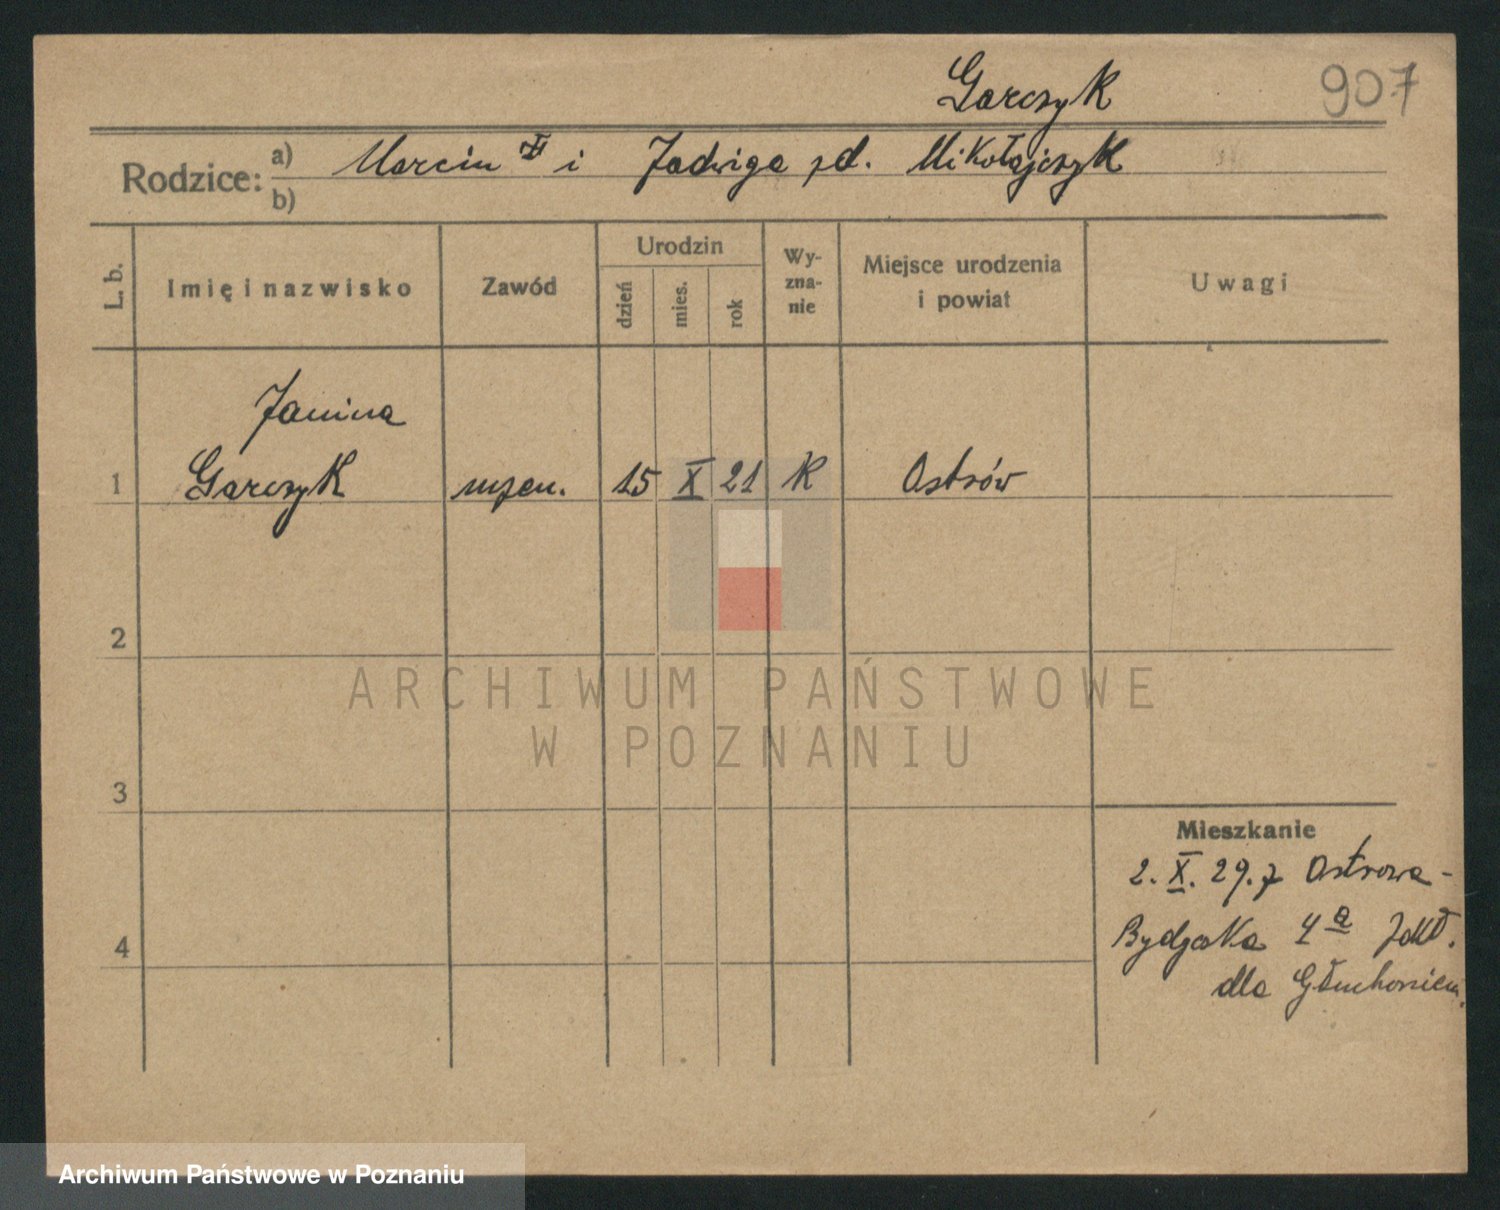 Garczyk 907
Rodzice: a) Marcin i Jadwiga zd. Mikołajczyk
b)
L. b. Imię i nazwisko Zawód Urodzin dzień mies. rok Wy-zna-nie Miejsce urodzenia i powiat Uwagi
Janina
1 Garczyk uczen. 15 X 21 K Ostrów
2
ARCHIWUM PAŃSTWOWE
W POZNANIU
3
Mieszkanie
2. X. 29. z Ostrowa -
4 Bydgoska 4a Zakł.
dla Głuchoniem.
Archiwum Państwowe w Poznaniu